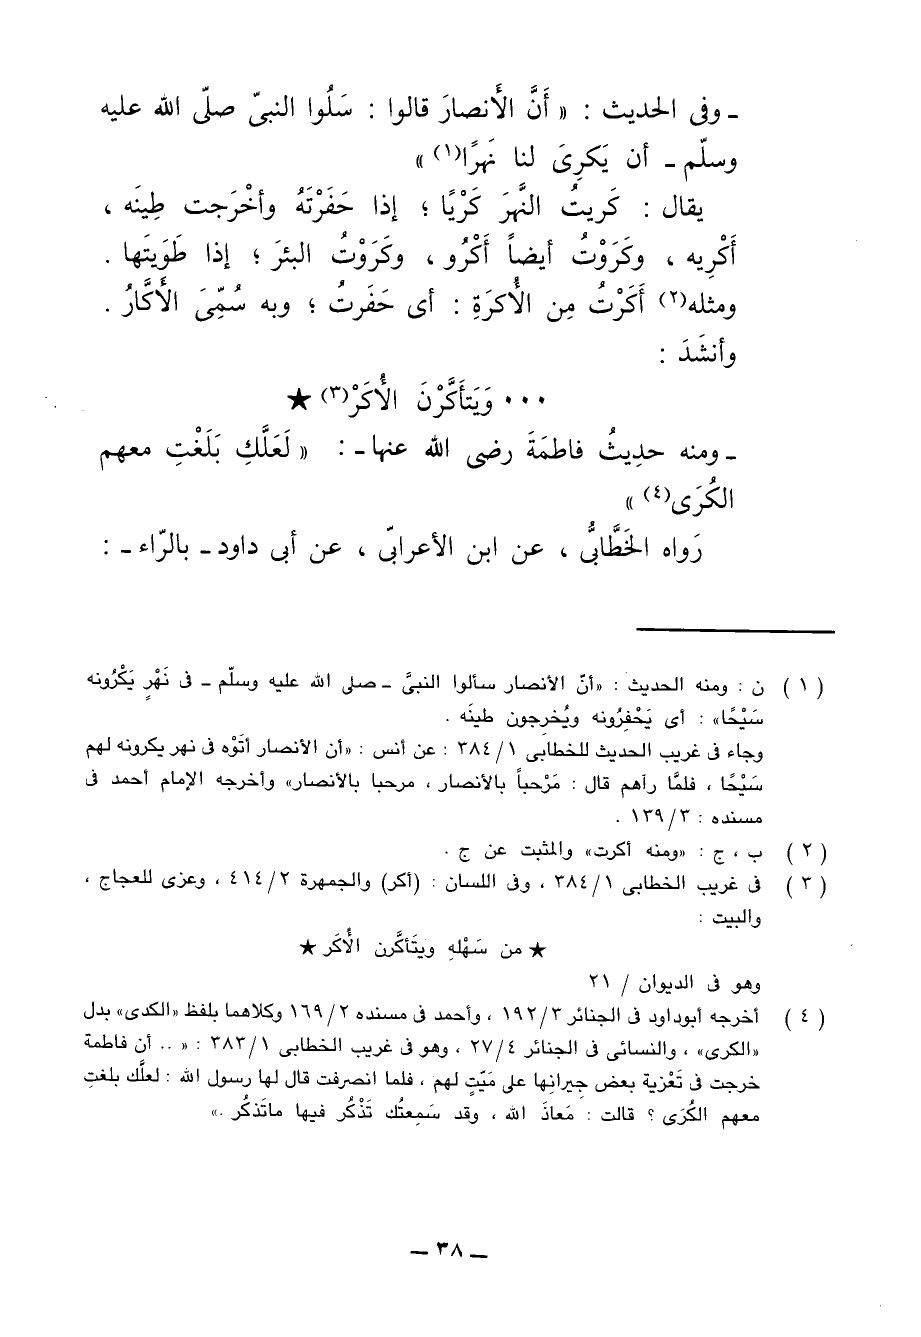 ـ وفى الحديث : « أَنَّ الأَنصارَ قالوا : سَلُوا النبىّ صلّى الله عليه
وسلّم ـ أن يَكرِىَ لنا نَهرًا(١) »
يقال : كَريتُ النَّهرَ كَرْيًا ؛ إذا حَفَرْتَهُ وأخْرَجت طِينَه ،
أَكْرِيه ، وكَرَوْتُ أيضاً أَكْرُو ، وكَرَوْتُ البئرَ ؛ إذا طَوَيتَها .
ومثله(٢) أَكَرْتُ مِن الأُكرَةِ : أى حَفَرتُ ؛ وبه سُمِّىَ الأَكَّارُ .
وأنشَدَ :
... وَيَتَأَكَّرْنَ الأُكَرْ(٣) ★
ـ ومنه حديثُ فاطمَةَ رضى الله عنها ـ : « لَعَلَّكِ بَلَغْتِ معهم
الكُرَى(٤) »
رَواه الخَطَّابىُّ ، عن ابن الأعرابىّ ، عن أبى داود ـ بالرّاء ـ :
( ١ ) ن : ومنه الحديث : «أنّ الأنصار سألوا النبىَّ ـ صلى الله عليه وسلّم ـ فى نَهْرٍ يَكْرُونه
سَيْحًا» : أى يَحْفِرُونه ويُخرجون طينَه .
وجاء فى غريب الحديث للخطابى ٣٨٤/١ : عن أنس : «أن الأنصار أتَوْه فى نهر يكرونه لهم
سَيْحًا ، فلمَّا رآهم قال : مَرْحباً بالأنصار ، مرحبا بالأنصار» وأخرجه الإمام أحمد فى
مسنده : ١٣٩/٣ .
( ٢ ) ب ، ج : «ومنه أكرت» والمثبت عن ج .
( ٣ ) فى غريب الخطابى ٣٨٤/١ ، وفى اللسان : (أكر) والجمهرة ٤١٤/٢ ، وعزى للعجاج ،
والبيت :
★ من سَهْلِه ويتَأكَّرن الأُكَر ★
وهو فى الديوان / ٢١
( ٤ ) أخرجه أبوداود فى الجنائز ١٩٢/٣ ، وأحمد فى مسنده ١٦٩/٢ وكلاهما بلفظ «الكدى» بدل
«الكرى» ، والنسائى فى الجنائز ٢٧/٤ ، وهو فى غريب الخطابى ٣٨٣/١ : « .. أن فاطمة
خرجت فى تَعْزية بعض جيرانِها على مَيّتٍ لهم ، فلما انصرفت قال لها رسول الله : لعلَّك بلغتِ
معهم الكُرَى ؟ قالت : مَعاذَ الله ، وقد سَمِعتُك تَذْكُر فيها ماتَذكُر .»
ـ ٣٨ ـ